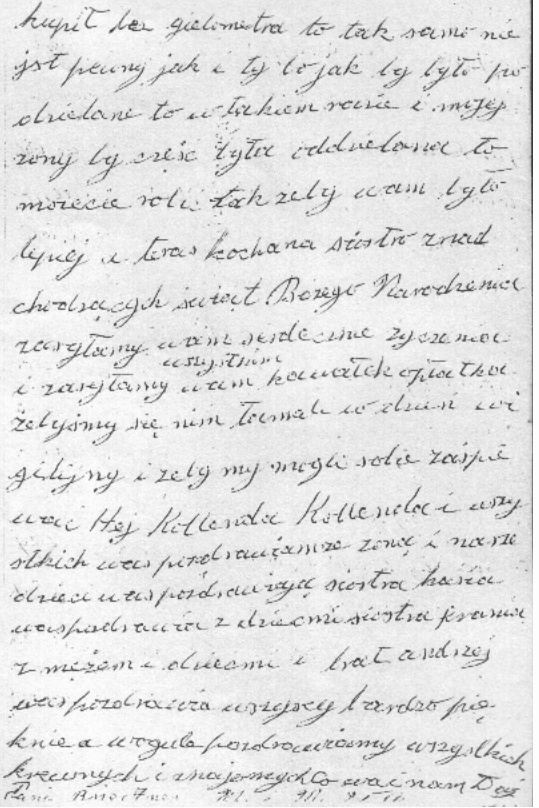 kupił bez gielometra to tak samo nie
jst pewny jak i ty bo jak by było po
dzielane to w takiem rasie i mojej
zony by częśc była oddzielana to
mozecie robic tak zeby wam było
lepiej i teras kochana siostro z nad
chodzących świąt Bożego Narodzenia
zasyłamy wam serdecznie zyczenia
wszystkim
i zasyłamy wam kawałek opłatka
żebyśmy się nim łamali w dzień wi
gilijny i zeby my mogli sobie zaśpie
wać Hej Kollenda Kollenda i wszy
stkich was pozdrawiam ze zoną i nasze
dzieci was pozdrawiają siostra kasia
was pozdrawia z dziećmi siostra frania
z mężem i dziecmi i brat andrzej
was pozdrawia wszyscy bardzo pię
knie a wogule pozdrawiamy wszystkich
krewnych i znajomych co wa i nam Daj